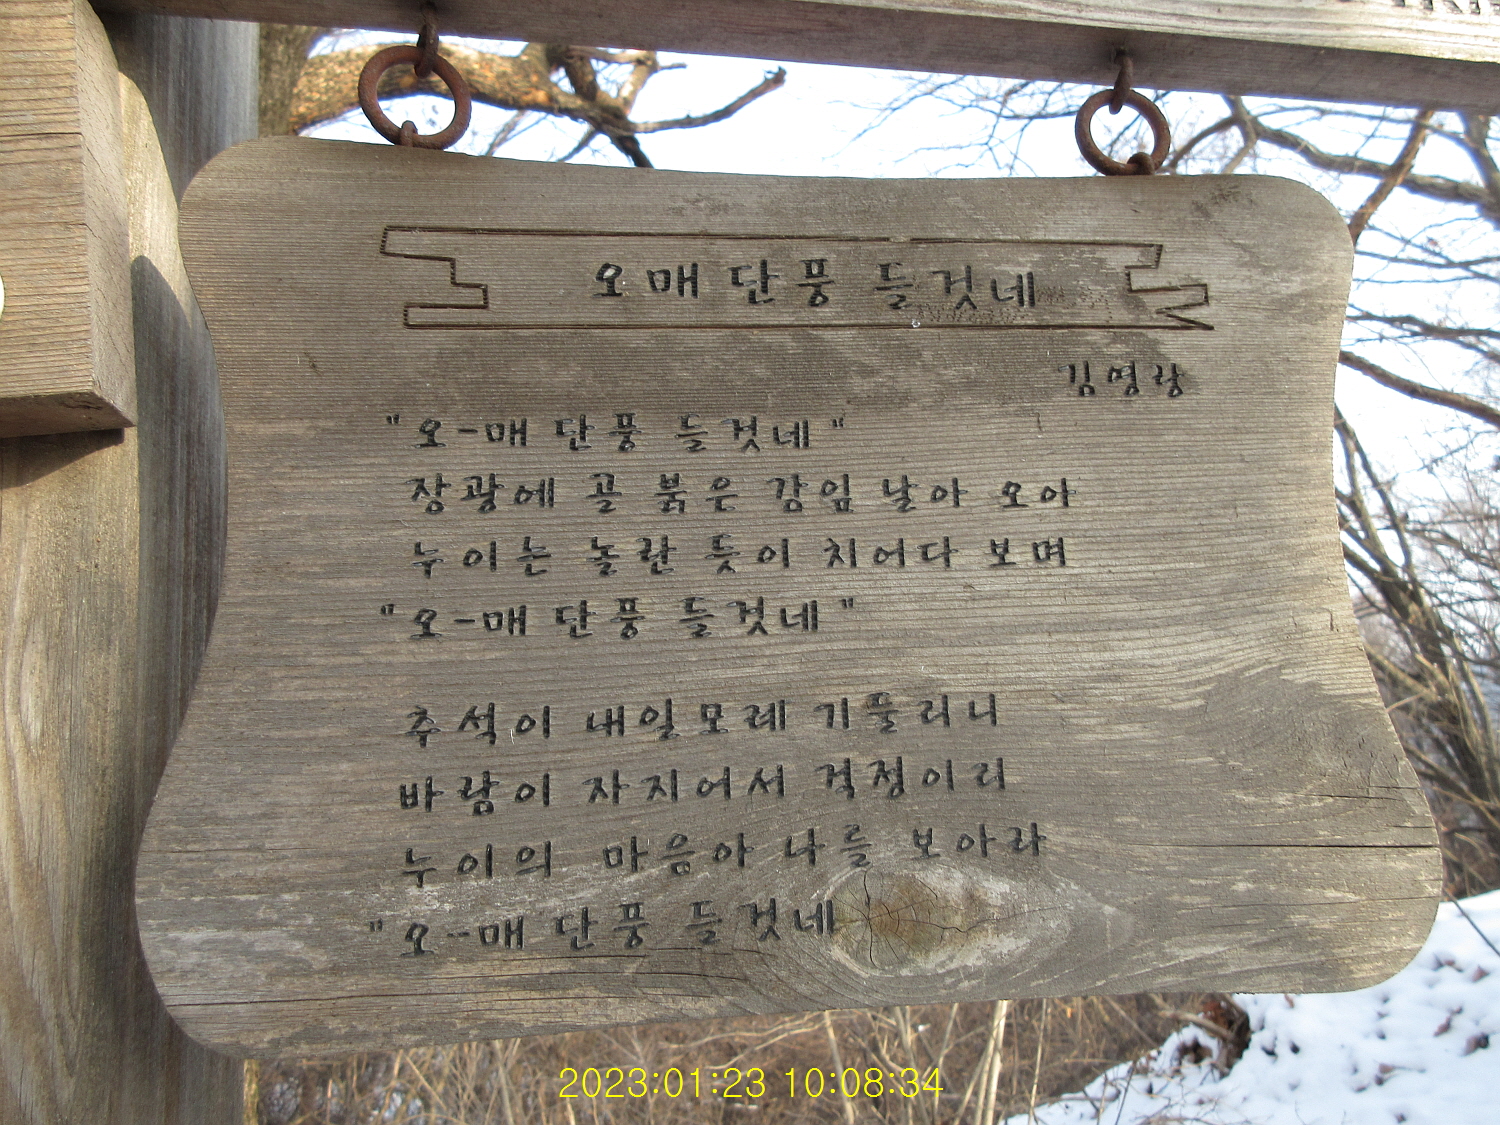 오매 단풍 들것네
김영랑
"오-매 단풍 들것네"
장광에 골 붉은 감잎 날아 오아
누이는 놀란 듯이 치어다 보며
"오-매 단풍 들것네"
추석이 내일모레 기둘리니
바람이 자지어서 걱정이리
누이의 마음아 나를 보아라
"오-매 단풍 들것네
2023:01:23 10:08:34